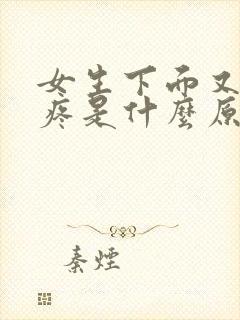 女生下而又
疼是什麼原
秦煙